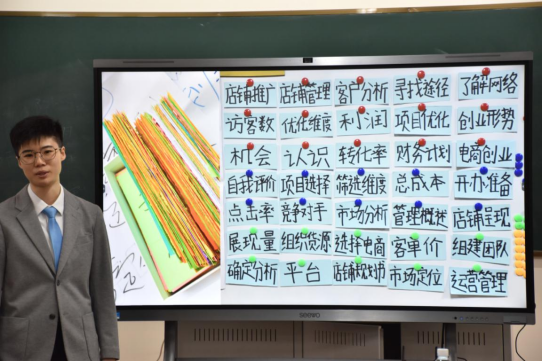 店铺推广 店铺管理 客户分析 寻找途径 了解网络
访客数 优化维度 利润 项目优化 创业形势
机会 认识 转化率 财务计划 电商创业
自我评价 项目选择 筛选维度 总成本 开办准备
点击率 竞争对手 市场分析 管理概述 店铺呈现
展现量 组织货源 选择电商 客单价 组建团队
确定分析 平台 店铺规划书 市场定位 运营管理